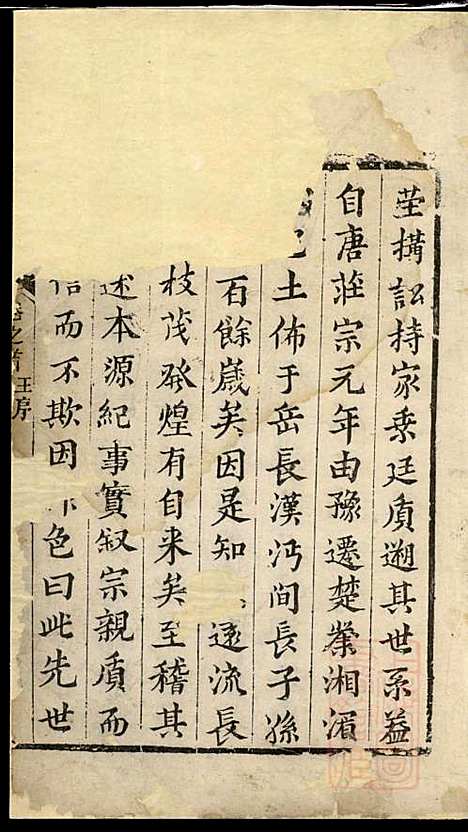 塋搆訟持家乗廷質遡其世系益
自唐莊宗元年由豫遷楚棃湘湄
土佈于岳長漢沔間長子孫
百餘嵗矣因是知遠流長
枝茂發煌有自来矣至稽其
述本源紀事實叙宗親質而
信而不欺因色曰此先世
卷之首 王序